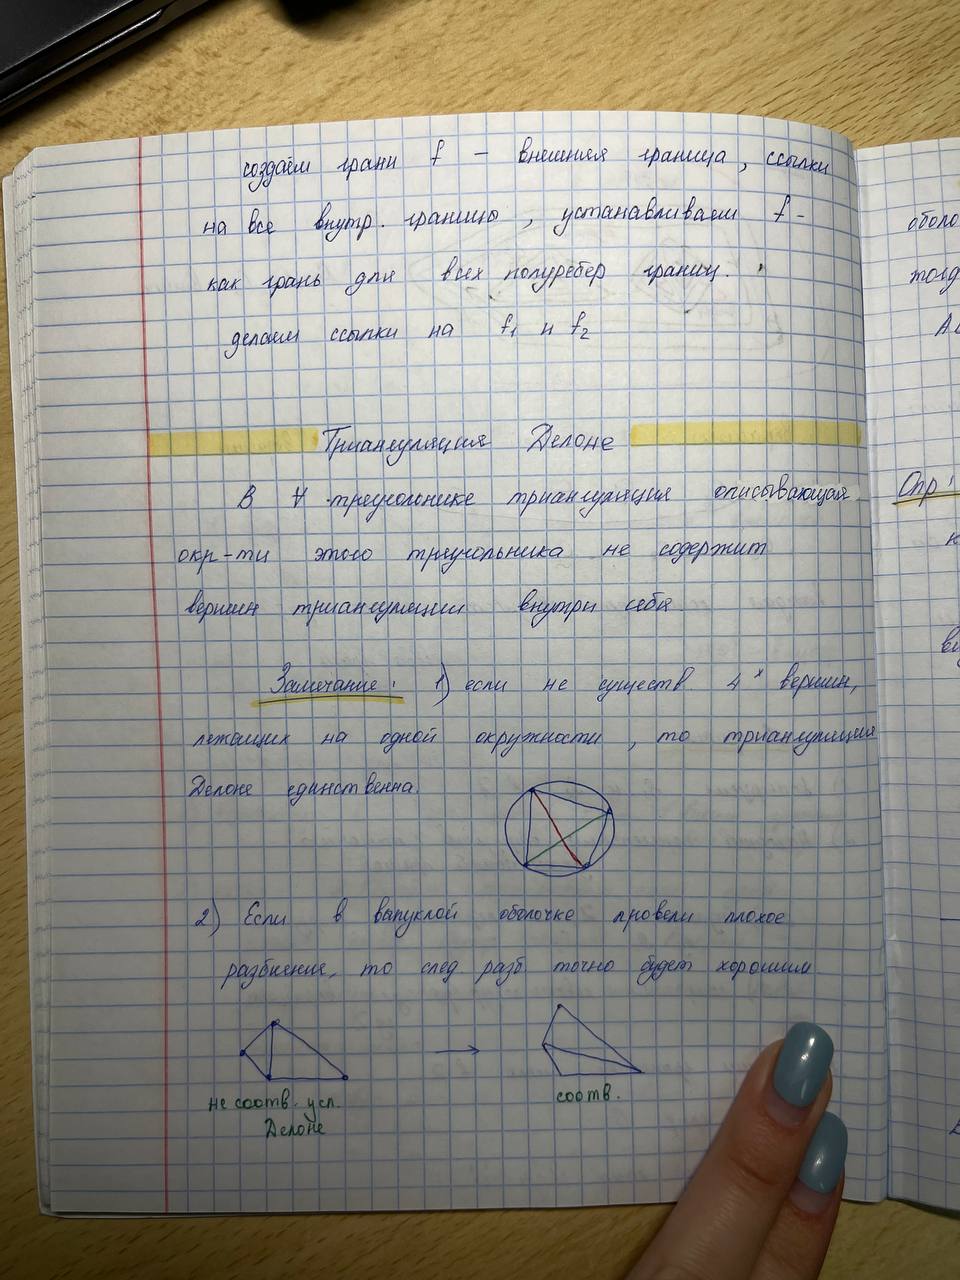 создаём грани f – внешняя граница, ссылки
на все внутр. границы, устанавливаем f –
как грань для всех полуребер границ.
делаем ссылки на f₁ и f₂
Триангуляция Делоне
В ∀ треугольнике триангуляция описывающая
окр-ти этого треугольника не содержит
вершин триангуляции внутри себя
Замечание: 1) если не существ. 4ˣ вершин,
лежащих на одной окружности, то триангуляция
Делоне единственна.
2) Если в выпуклой оболочке провели плохое
разбиение, то след. разб точно будет хорошим
не соотв. усл.
Делоне
соотв.
оболо
тогд
Опр: